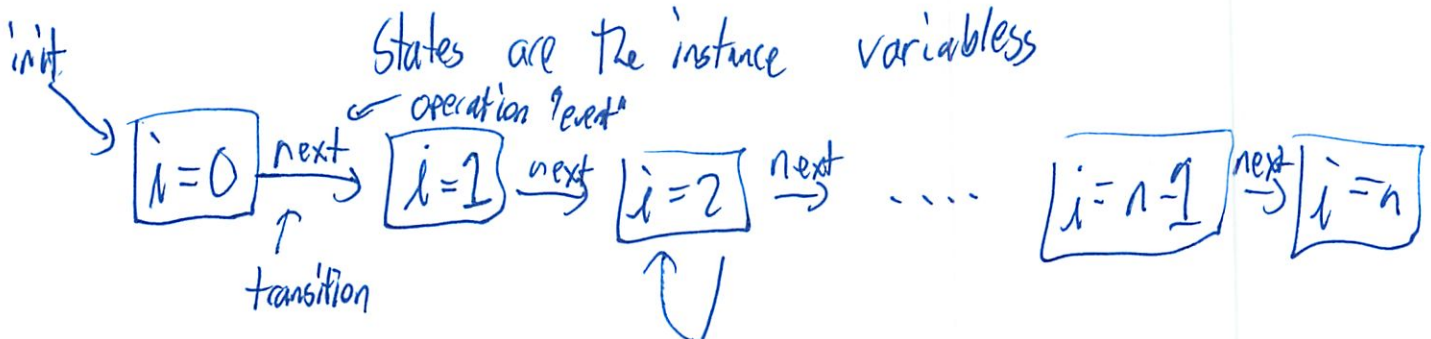 init
States are the instance variabless
operation "event"
i=0 next i=1 next i=2 next .... i=n-1 next i=n
transition